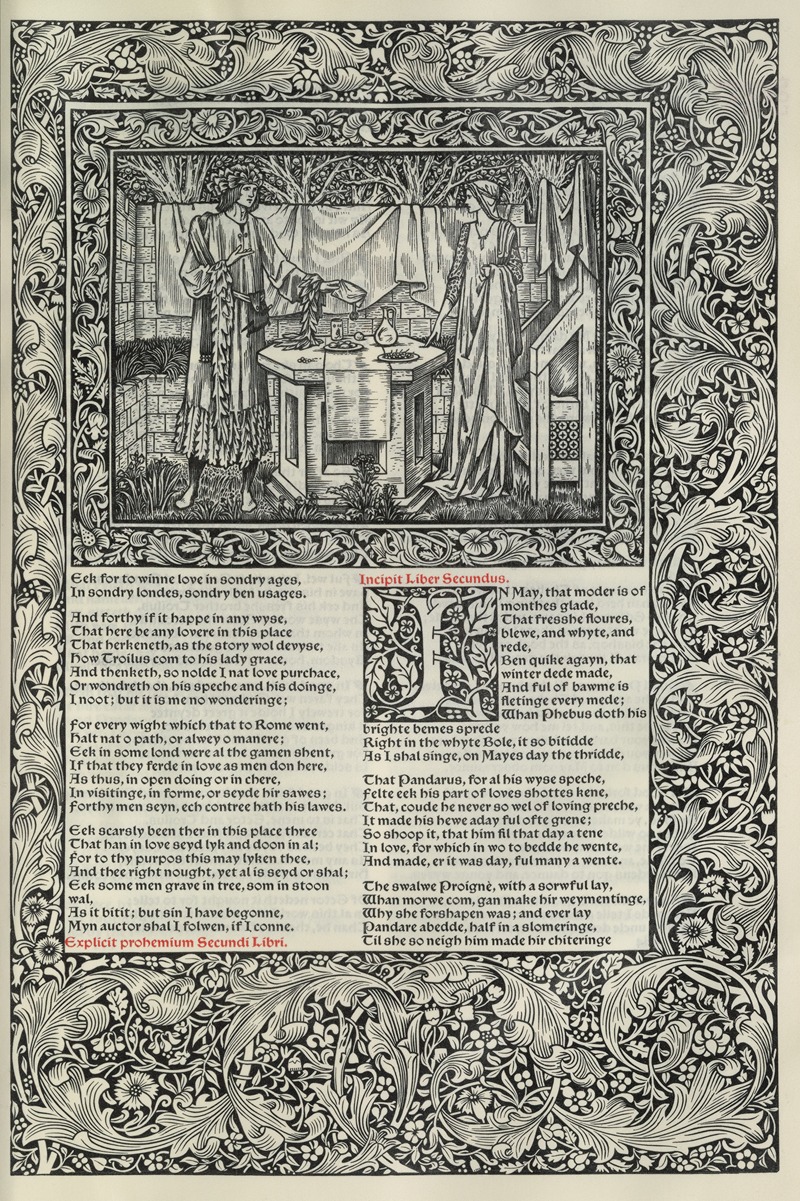 Eek for to winne love in sondry ages,
In sondry londes, sondry ben usages.
And forthy if it happe in any wyse,
That here be any lovere in this place
That herkeneth, as the story wol devyse,
How Troilus com to his lady grace,
And thenketh, so nolde I nat love purchace,
Or wondreth on his speche and his doinge,
I noot; but it is me no wonderinge;
For every wight which that to Rome went,
Halt nat o path, or alwey o manere;
Eek in some lond were al the gamen shent,
If that they ferde in love as men don here,
As thus, in open doing or in chere,
In visitinge, in forme, or seyde hir sawes;
Forthy men seyn, ech contree hath his lawes.
Eek scarsly been ther in this place three
That han in love seyd lyk and doon in al;
For to thy purpos this may lyken thee,
And thee right nought, yet al is seyd or shal;
Eek some men grave in tree, som in stoon
wal,
As it bitit; but sin I have begonne,
Myn auctor shal I folwen, if I conne.
Explicit prohemium Secundi Libri.
Incipit Liber Secundus.
IN May, that moder is of
monthes glade,
That fresshe floures,
blewe, and whyte, and
rede,
Ben quike agayn, that
winter dede made,
And ful of bawme is
fletinge every mede;
Whan Phebus doth his
brighte bemes sprede
Right in the whyte Bole, it so bitidde
As I shal singe, on Mayes day the thridde,
That Pandarus, for al his wyse speche,
Felte eek his part of loves shottes kene,
That, coude he never so wel of loving preche,
It made his hewe aday ful ofte grene;
So shoop it, that him fil that day a tene
In love, for which in wo to bedde he wente,
And made, er it was day, ful many a wente.
The swalwe Proignè, with a sorwful lay,
Whan morwe com, gan make hir weymentinge,
Why she forshapen was; and ever lay
Pandare abedde, half in a slomeringe,
Til she so neigh him made hir chiteringe